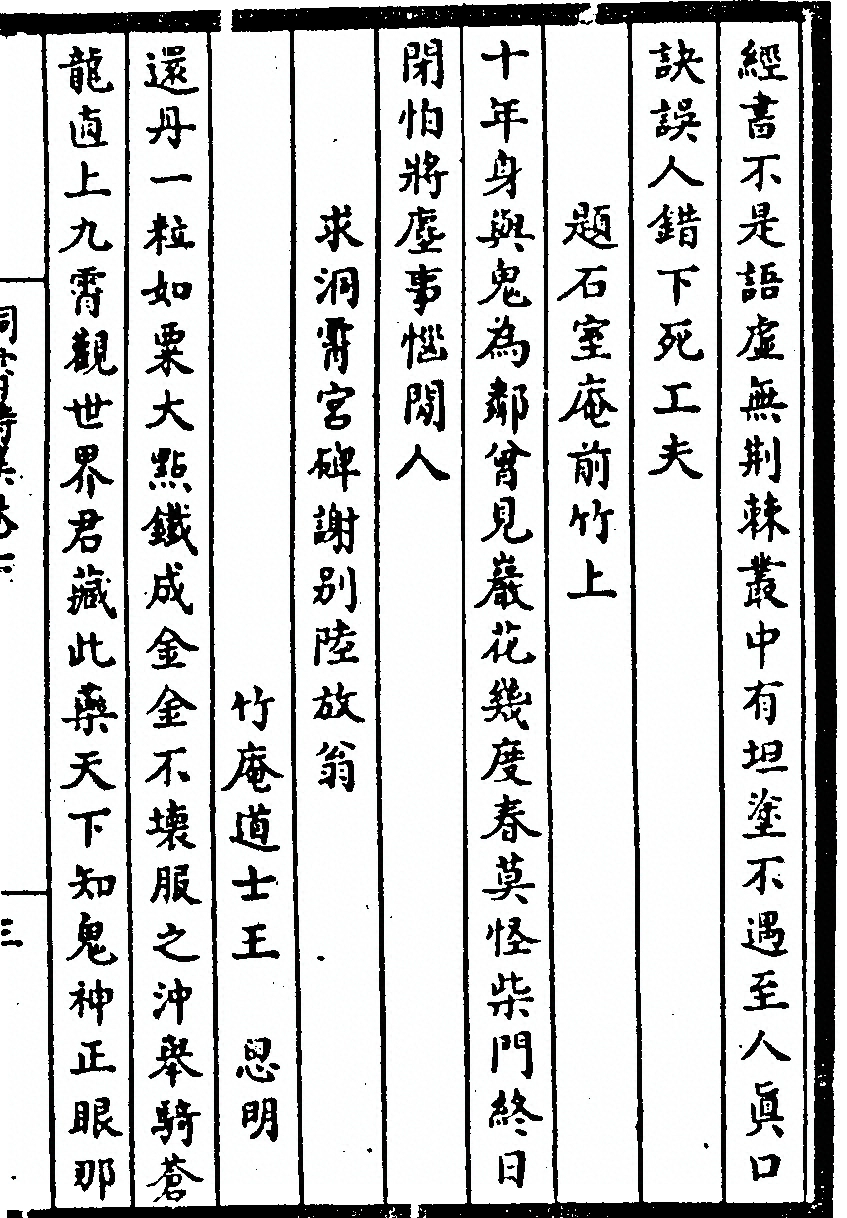 經書不是語虛無荆棘叢中有坦塗不遇至人眞口
訣誤人錯下死工夫
題石室庵前竹上
十年身與鬼為鄰曾見巖花幾度春莫怪柴門終日
閉怕將塵事惱閒人
求洞霄宮碑謝別陸放翁
竹庵道士王 思明
還丹一粒如粟大點鐵成金金不壞服之沖舉騎蒼
龍直上九霄觀世界君藏此藥天下知鬼神正眼那
洞霄詩集卷
三